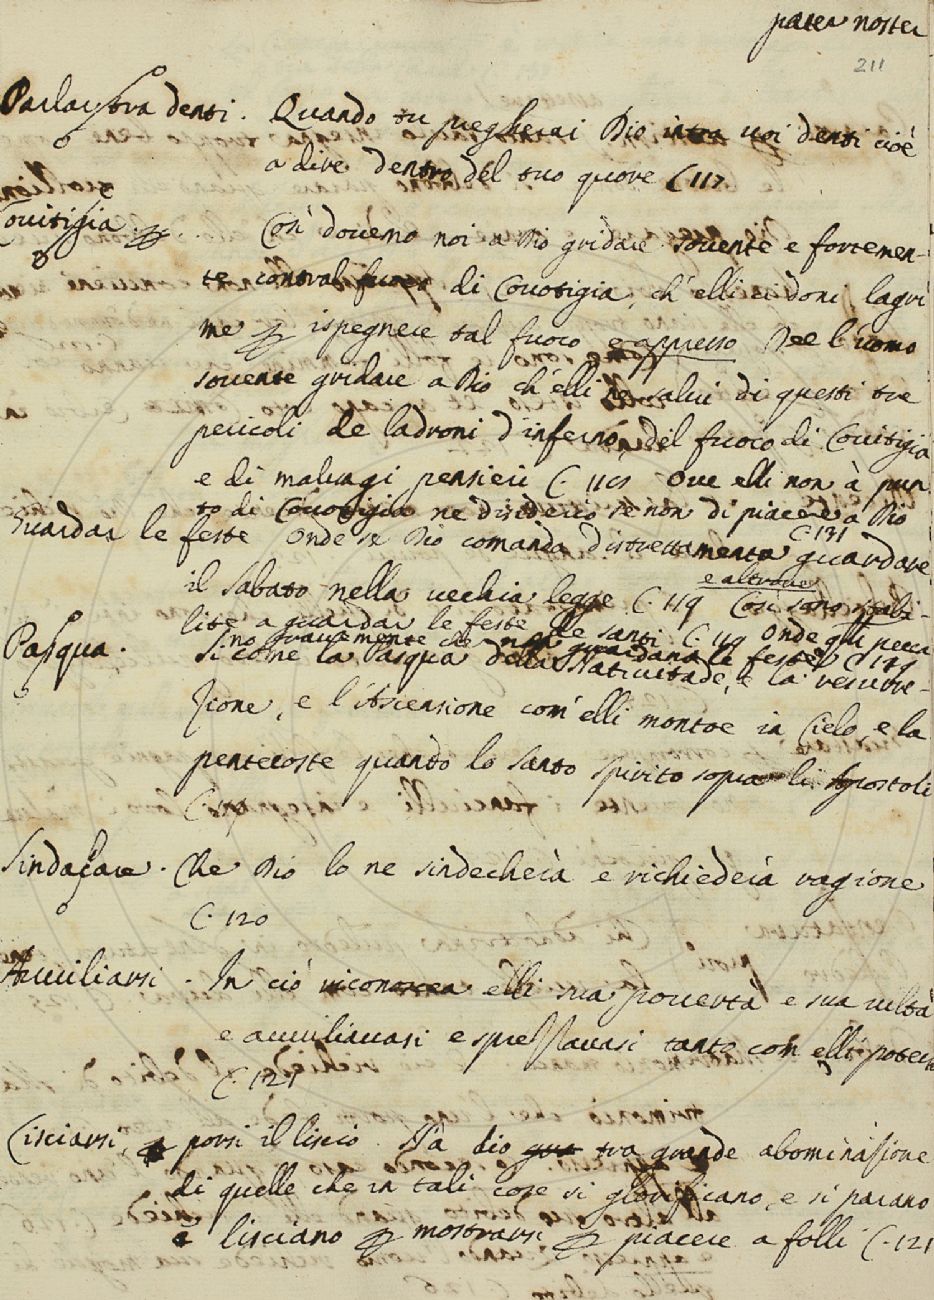 pater noster
211
Parlar tra denti. Quando tu pregherai Dio intra tuoi denti cioè
a dire dentro del tuo quore C. 117
Covitigia Così dovemo noi a Dio gridare sovente e fortemen-
te contral fuoco di Covotigia, ch'elli ci doni lagri
me ispegnere tal fuoco e appresso Dee l'uomo
sovente gridare a Dio ch'elli ne salvi di questi tre
pericoli de ladroni d'inferno, del fuoco di Covitigia
e di malvagi pensieri C. Ove elli non à pun
to di Covotigia ne disiderio se non di piacere a Dio
C. 131
Guardar le feste Onde se Dio comanda distrettamente guardare
e altrove
il Sabato nella vecchia legge C. 119 Così sono stabi-
lite a guardar le feste de santi C. 119 Onde
gravemente che non guardano le feste C 119
Pasqua. Si come la Pasqua della Natividade, e la resurre-
zione, e l'Ascensione com'elli montoe in Cielo, e la
pentecoste quando lo Santo Spirito sopra li Apostoli
Sindacare. Che Dio lo ne sindecherà e richiederà ragione
C. 120
Avviliarsi. In ciò riconoscea elli sua povertà e sua viltà
e avviliavasi e spregiavasi tanto com elli potea
C. 121
Lisciarsi, porsi il liscio. A dio tra grande abominazione
di quelle che in tali cose si glorificano, e si parano
e lisciano mostrarsi piacere a folli C. 121